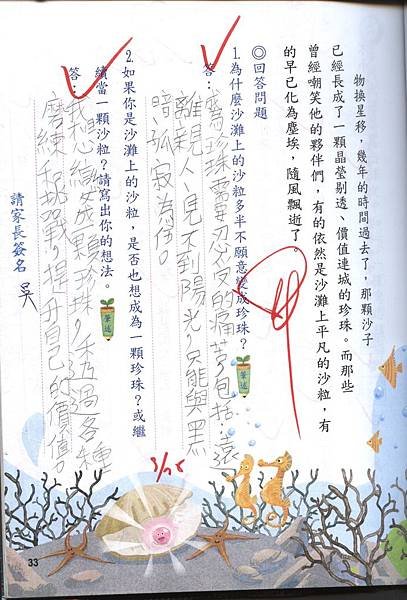 物換星移，幾年的時間過去了，那顆沙子
已經長成了一顆晶瑩剔透、價值連城的珍珠。而那些
曾經嘲笑他的夥伴們，有的依然是沙灘上平凡的沙粒，有
的早已化為塵埃，隨風飄逝了。
◎回答問題
1.為什麼沙灘上的沙粒多半不願意變成珍珠？
筆述
答：當珍珠需要忍受的痛苦包括：遠
離親人、見不到陽光，只能與黑
暗、孤寂為伍。
2.如果你是沙灘上的沙粒，是否也想成為一顆珍珠？或繼
續當一顆沙粒？請寫出你的想法。
筆述
答：我想變成一顆珍珠，透過各種
磨練和挑戰，提升自己的價值。
請家長簽名
吳
甲
33